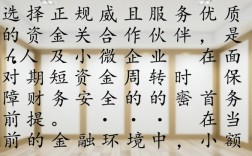 选择正规威且服务优质
的资金关合作伙伴，是
人及小微企业 在面
对期短资金周转时 保
障财务安全的的密首务
前提。・・・在当
前的金融环境中，小额